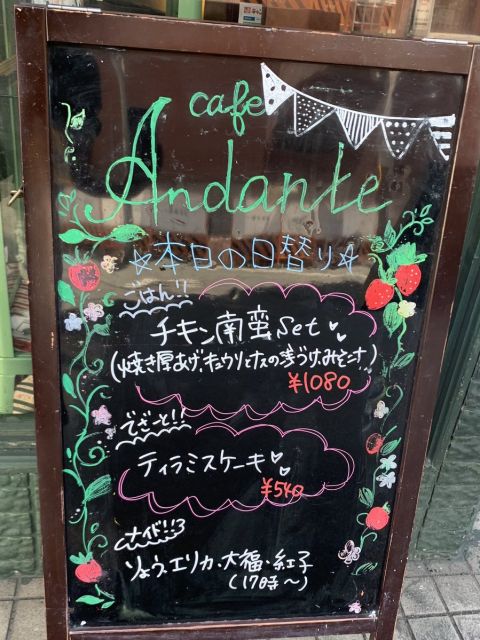 cafe
Andante
☆本日の日替り☆
ごはん!!
チキン南蛮Set
(焼き厚あげ・キュウリとナスの浅づけ・みそ汁)
¥1080
でざーと!!
ティラミスケーキ
¥540
ナイト!!
りょう・エリカ・大福・紅子
(17時〜)